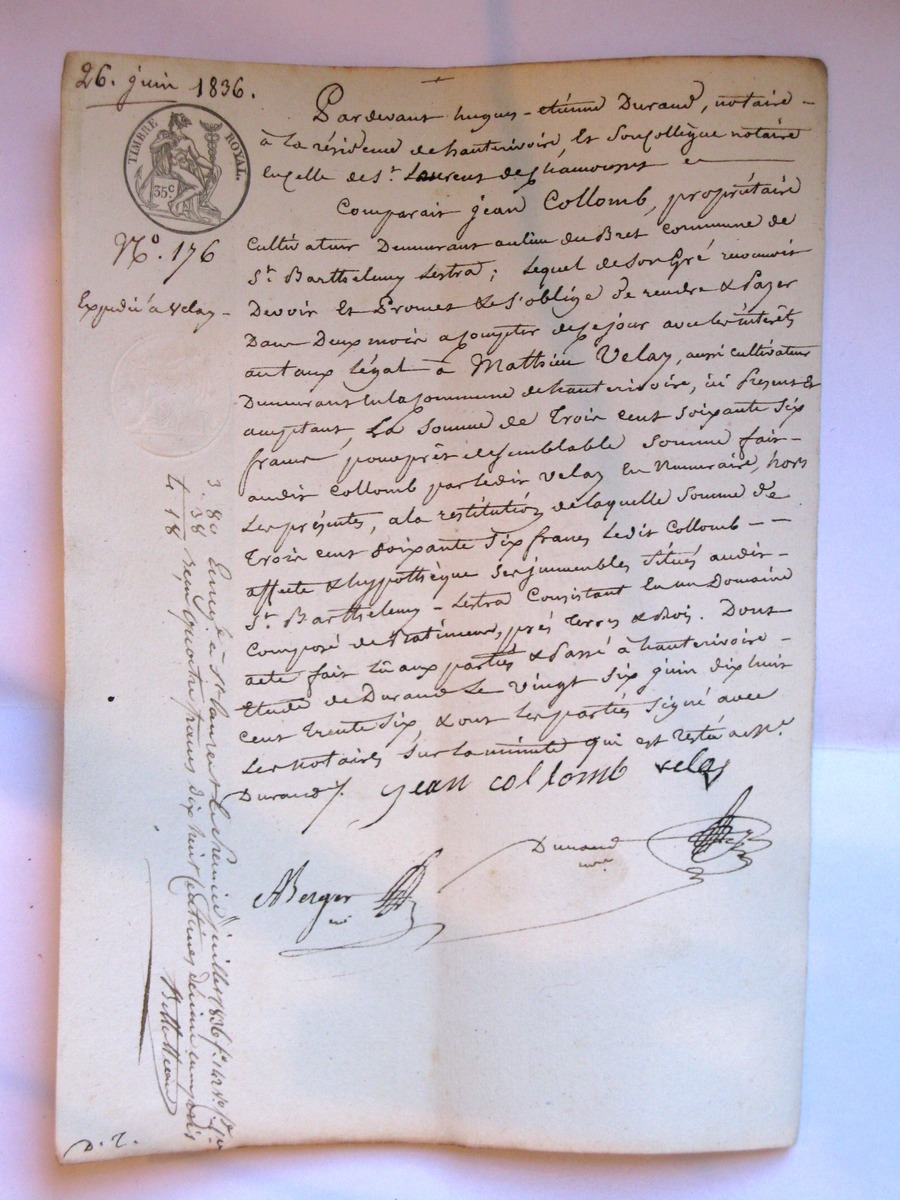 26. juin 1836.
TIMBRE ROYAL.
35 c.
N.º 176
Expédié à Velay -
Pardevant hugues - etienne Durand, notaire -
à la résidence de hauterivoire, Et Son Collègue notaire
En celle de St. Laurent de Chamousset
Comparait jean Collomb, propriétaire
Cultivateur Demeurant au lieu du Bret commune de
St. Barthelemy Lestra; lequel de Son Gré reconnoit
Devoir Et Promet & S'oblige De rendre & Payer
Dans Deux mois a Compter de Ce jour avec les interêts
au taux légal à Mathieu Velay, aussi cultivateur
Demeurant En la Commune de hauterivoire, ici present Et
acceptant, La Somme de Trois Cent Soixante Six
francs, pour prêt de semblable Somme fait -
audit Collomb par ledit Velay En Numeraire, hors
Les présentes, a la restitution de laquelle Somme de
Trois cent Soixante Six francs ledit Collomb - -
affecte & hypothèque Ses immeubles Situés audit -
St. Barthelemy - Lestra Consistant En un Domaine
Composé de Batiments, prés Terres & Bois. Dont
acte fait lû aux parties & Passé à hauterivoire -
Etude de Durand Le Vingt Six juin dix huit
Cent trente Six, & ont les parties Signé avec
Les notaires Sur la minute qui est restée a Me.
Durand /.
jean collomb velay
Durand
nre
ABerger
3. 80
38
4 18
Enreg. à St Laurent le premier juillet 1836
reçu quatre francs dix huit centimes décime compris